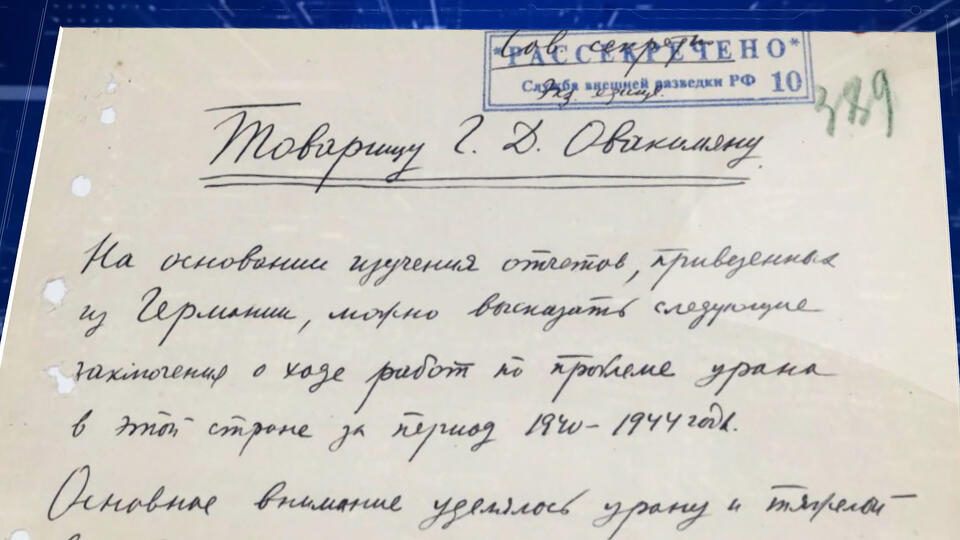 Сов. секретн
*РАССЕКРЕЧЕНО*
Служба внешней разведки РФ 10
Экз. единст.
389
Товарищу Г. Д. Овакимяну
На основании изучения отчетов, привезенных
из Германии, можно высказать следующие
заключения о ходе работ по проблеме урана
в этой стране за период 1940–1944 годы.
Основное внимание уделялось урану и тяжелой